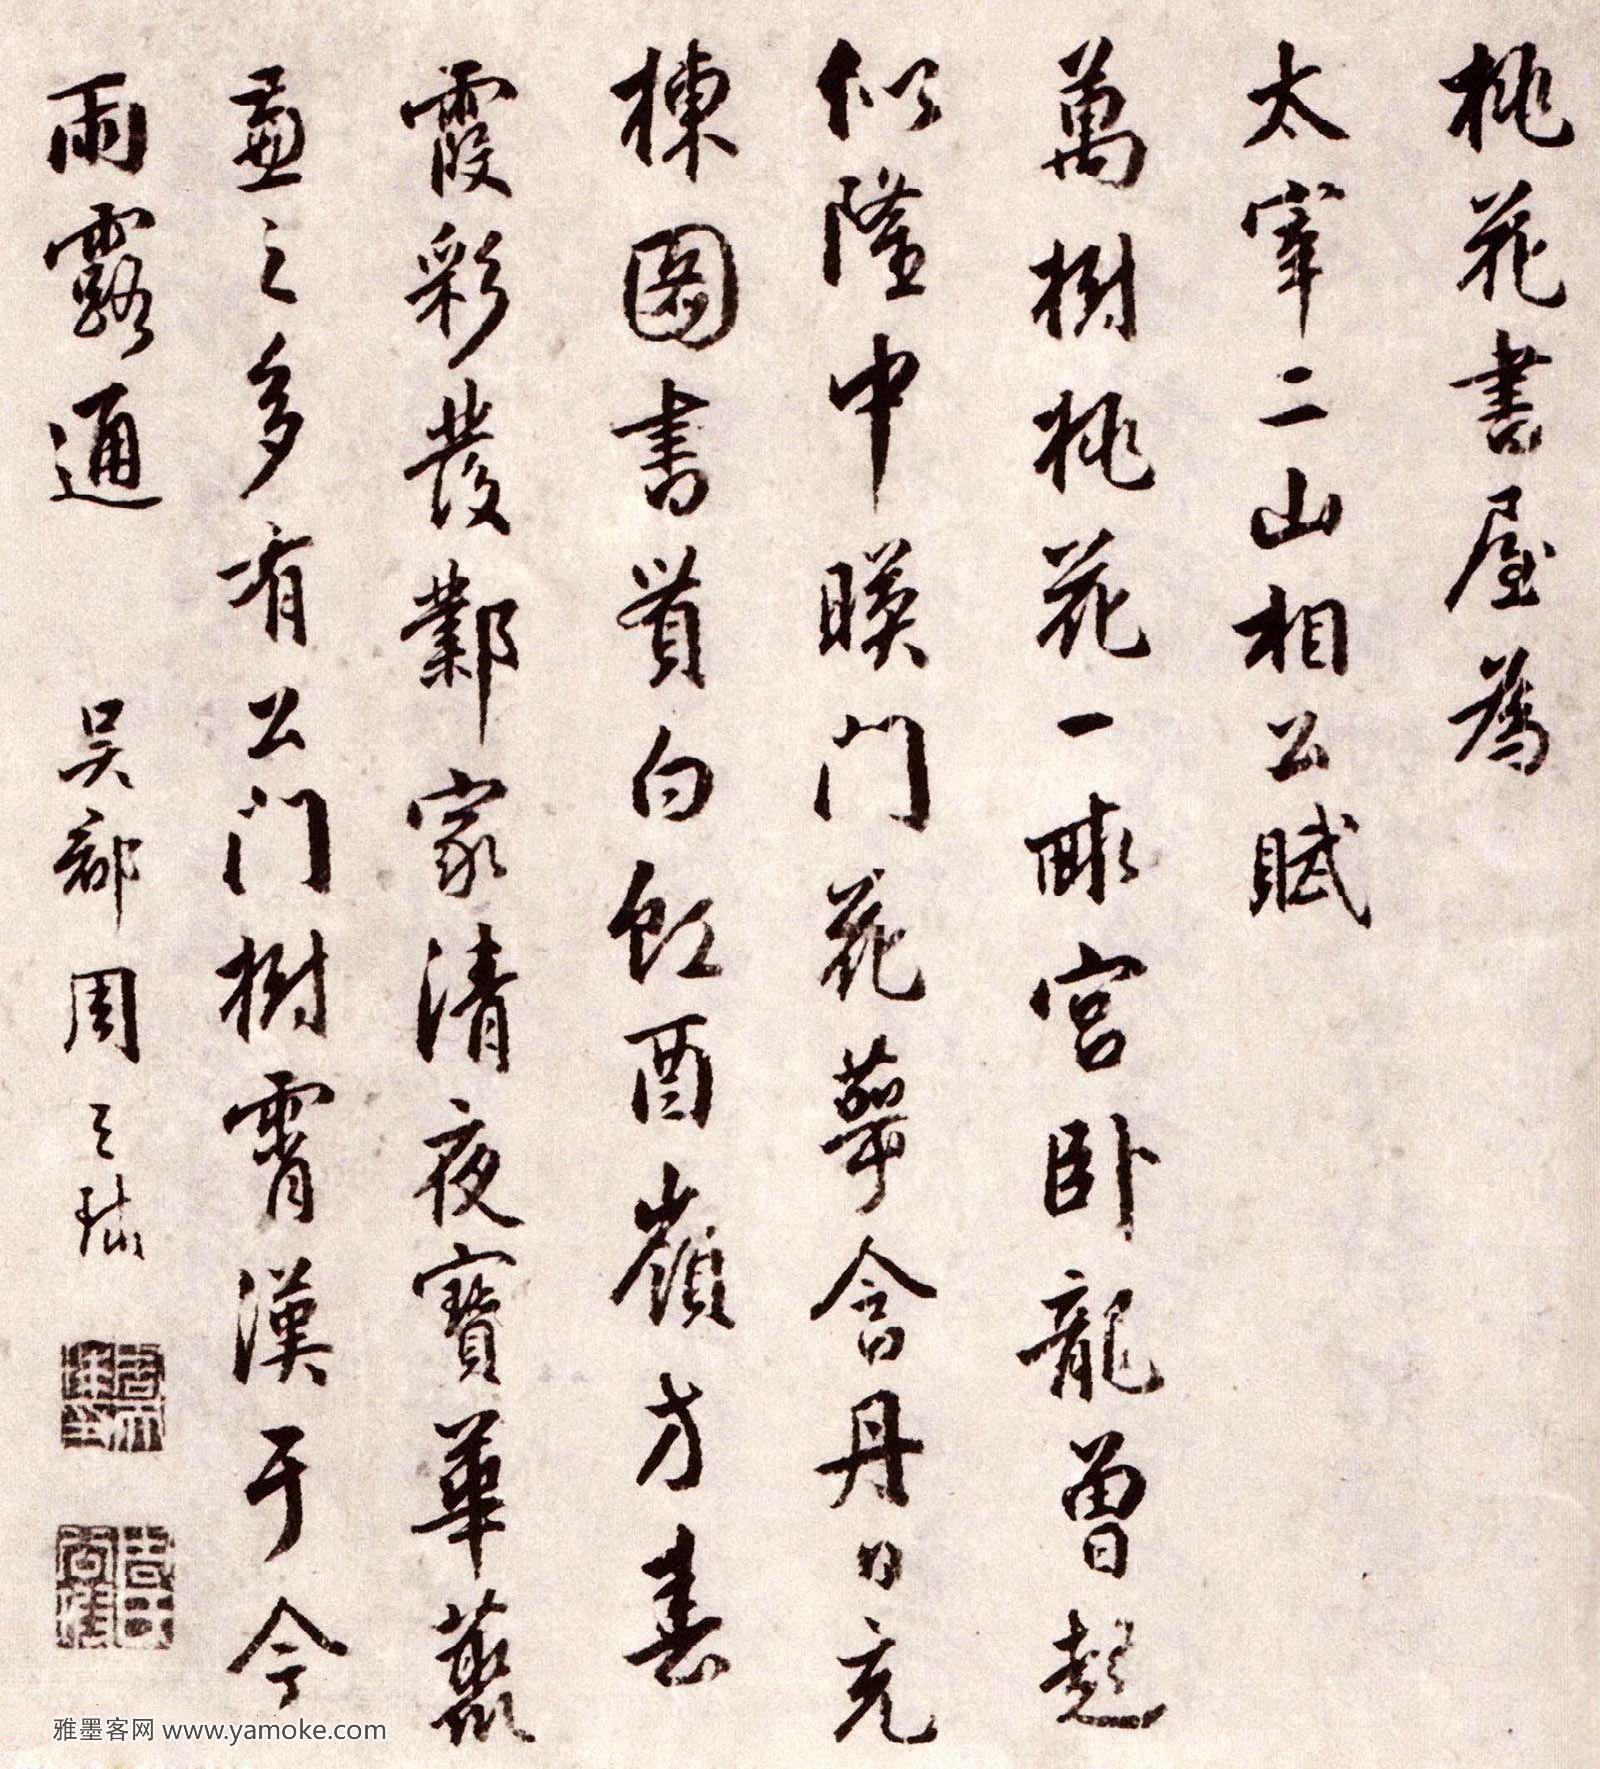 桃花書屋為
太宰二山相公賦
萬樹桃花一畝宮卧龍曾起
似隆中暎門花萼含丹日充
棟圖書貫白虹酉嶺方春
霞彩發鄴家清夜寶華藂
之多有公門樹霄漢于今
雨露通 吳郡周天球
雅墨客网 www.yamoke.com